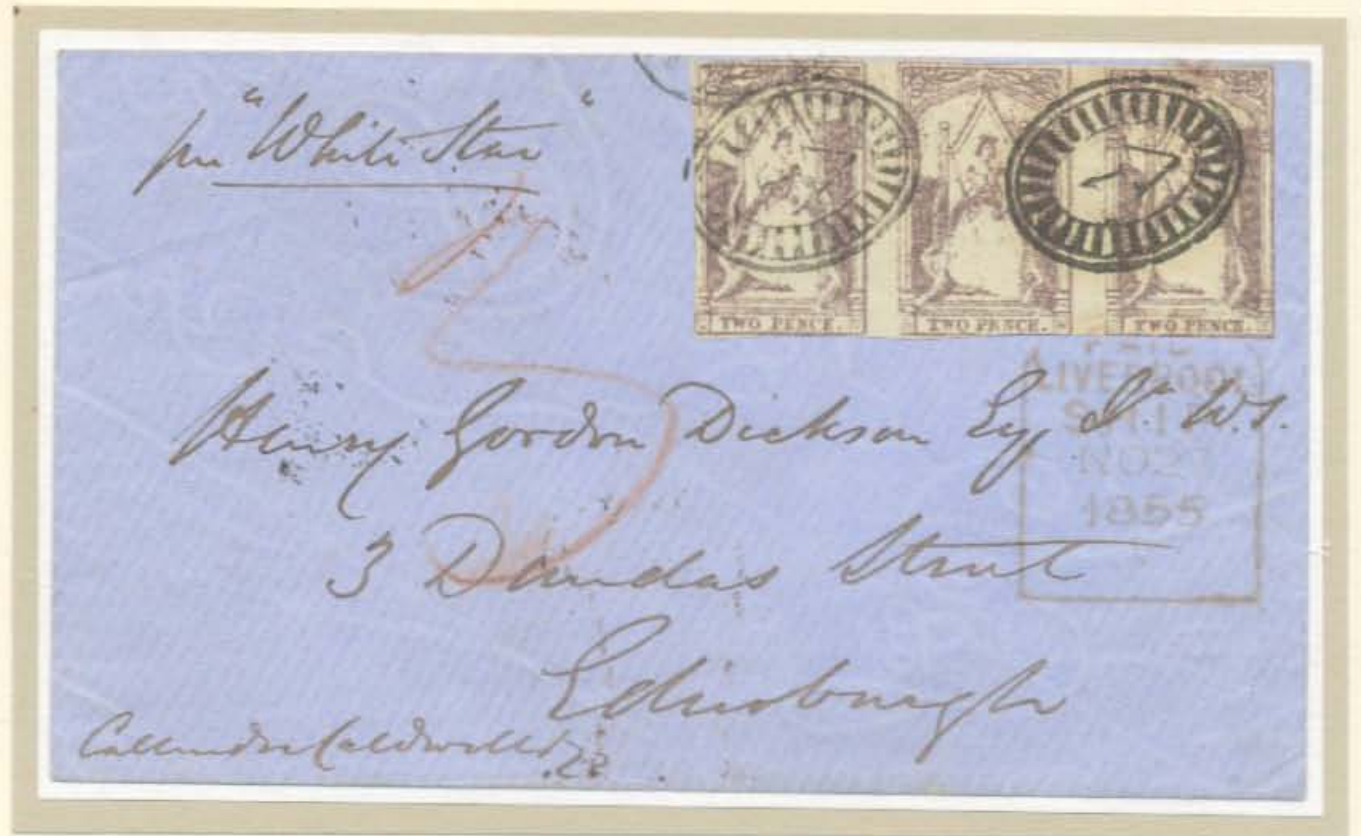 per "White Star"
TWO PENCE. TWO PENCE. TWO PENCE.
7
LIVERPOOL
SHIP
NO27
1855
Henry Gordon Dickson Esq Jr W.S.
3 Dundas Street
Edinburgh
Callender Caldwell